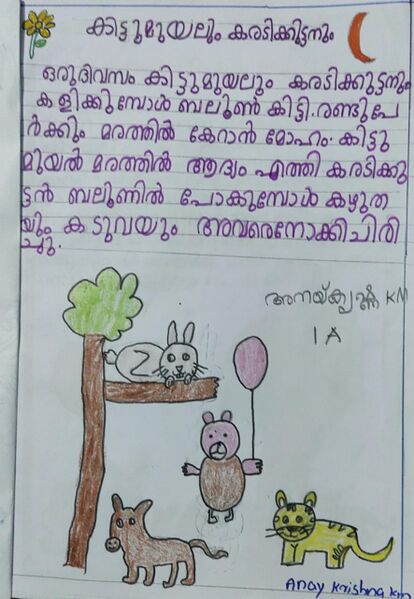 കിട്ടുമുയലും കരടിക്കുട്ടനും
ഒരുദിവസം കിട്ടുമുയലും കരടിക്കുട്ടനും
കളിക്കുമ്പോൾ ബലൂൺ കിട്ടി. രണ്ടുപേ
ർക്കും മരത്തിൽ കേറാൻ മോഹം. കിട്ടു
മുയൽ മരത്തിൽ ആദ്യം എത്തി കരടിക്കു
ട്ടൻ ബലൂണിൽ പോകുമ്പോൾ കഴുത
യും കടുവയും അവരെനോക്കിചിരി
ച്ചു.
അനയ്കൃഷ്ണ KM
1 A
Anay Krishna KM